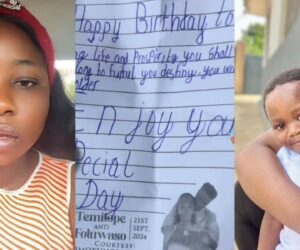 Happy Birthday to
ng life and Prosperity you shall
to fulful you destiny. you w
older
Enjoy you
Special
Day
Temitope
and
Foluwaso
COURTESY
21ST
SEPT.
2024